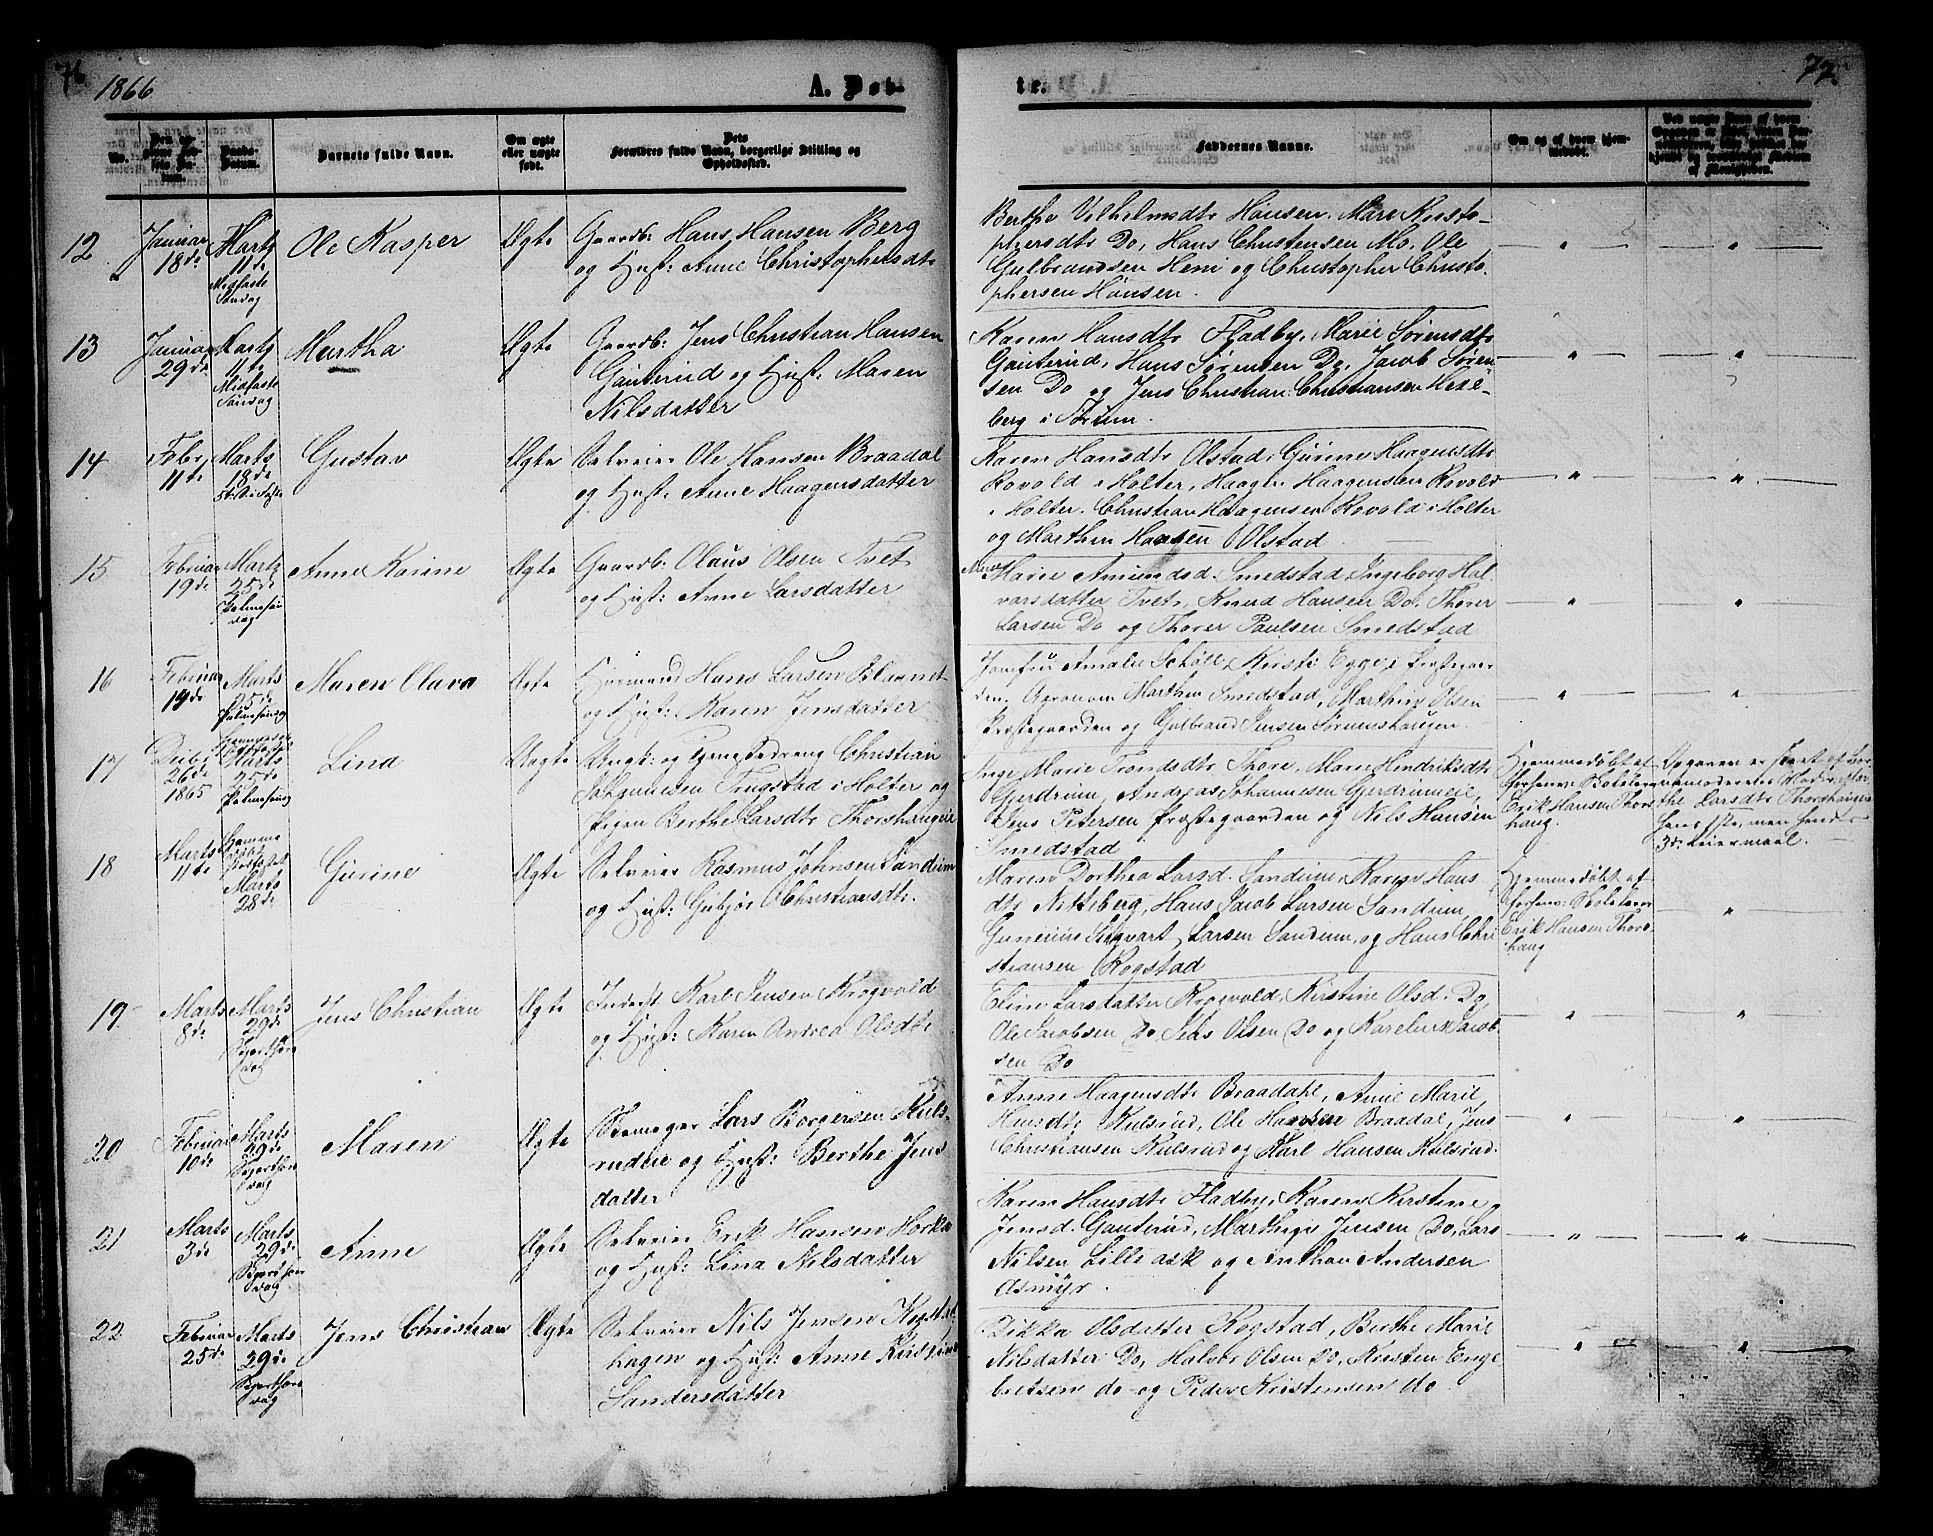 76
1866
A. Døb-
te.
77
No.
Barnets fulde Navn.
Om ægte
eller uægte
født.
Dets
Forældres fulde Navn, borgerlige Stilling og
Opholdssted.
Faddernes Navne.
Om og af hvem hjem-
medøbt.
12
Januar
18de
Marts
11te
Midfaste
Søndag
Ole Kasper
Ægte
Gaardb: Hans Hansen Berg
og Hust: Anne Christophersdtr
Berthe Vilhelmsdtr Hønsen, Mari Kristo-
phersdtr Do, Hans Christensen Mo, Ole
Gulbrandsen Heni og Christopher Christo-
phersen Hønsen.
13
Januar
29de
Marts
11te
Midfaste
Søndag
Martha
Ægte
Gaardb: Jens Christian Hansen
Gauterud og Hust: Maren
Nilsdatter
Karen Hansdtr Fladby, Marie Sørensdtr
Gauterud, Hans Sørensen Do, Jacob Søren-
sen Do og Jens Christian Christiansen Hexe-
berg i
14
Febr
11te
Marts
18de
Gustav
Ægte
Selveier Ole Hansen Braadal
og Hust: Anne Haagensdatter
Karen Hansdtr Olstad, Gurine Haagensdtr
Kovold i Holter, Haagen Haagensen Kovold
i Holter, Christian Haagensen Kovold i Holter
og Marthin Hansen Olstad
15
Februar
19de
Marts
25de
Palmesøn-
dag
Anne Karine
Ægte
Gaardb: Olaus Olsen Tvet
og Hust: Anne Larsdatter
Marie Amundsd. Smedstad, Ingeborg Hal-
varsdatter Tvet, Knud Hansen Do, Thorer
Larsen Do og Thorer Paulsen Smedstad
16
Februar
14de
Marts
25de
Palmesøndag
Maren Olava
Ægte
Huusmand Hans Larsen
og Hust: Karen Jensdatter
Jomfru Amalie Schøll, Kirsti Egge, Præstegaar-
den, Agronom Marthin Smedstad, Marthin Olsen
Præstegaarden og Gulbrand Jensen Sørumshaugen.
17
Decbr
26de
1865
Marts
25de
Palmesøndag
Lina
Uægte
Ungk: og Tjenestedreng Christian
Johannesen Trugstad i Holter og
Pigen Berthe Larsdtr Thorshaugeie
Inge Marie Trondsdtr Thore, Maren Hendriksdtr
Gjerdrum, Andreas Johannesen Gjerdrumeie,
Jens Petersen Præstegaarden og Nils Hansen
Smedstad
Hjemmedøbt af
forhenv: Skolelærer
Erik Hansen Thors-
haug.
Opgaven er skeet af Bar-
nemoderens Moder Mar-
the Larsdtr Thorshaugeie
hans 1ste, men hendes
3de Leiermaal.
18
Marts
11te
Hjemme-
døbt
Marts
28de
Gurine
Ægte
Selveier Rasmus Johnsen Sandum
og Hust: Gubjør OChristiansdtr.
Maren Dorthea Larsd. Sandum, Karen Hans-
dtr Nitteberg, Hans Jacob Larsen Sandum,
Sigvart Larsen Sandum, og Hans Chri-
stiansen Rogstad
Hjemmedøbt af
forhenv: Skolelærer
Erik Hansen Thors-
haug
19
Marts
8de
Marts
29de
Skjærthors-
dag
Jens Christian
Ægte
Inderst Karl Jensen Krogvold
og Hust: Karen Andrea Olsdtr
Eline Larsdatter Krogvold, Kirstine Olsd. Do,
Ole Jacobsen Do, Jens Olsen Do og Karelius Jacob-
sen Do
20
Februar
10de
Marts
29de
Skjærthors-
dag
Maren
Ægte
Skomager Lars Borgersen Kuls-
rudeie og Hust: Berthe Jens-
datter
Anne Haagensdtr Braadahl, Anne Marie
Hansdtr Kulsrud, Ole Hansen Braadal, Jens
Christiansen Kulsrud og Karl Hansen Kulsrud.
21
Marts
3de
Marts
29de
Skjærthors-
dag
Anne
Ægte
Selveier Erik Hansen
og Hust: Lina Nilsdatter
Karen Hansdtr Fladby, Karen Kirstine
Jensd. Gauterud, Marthege Jensen Do, Lars
Nilsen Lilleask og Anthon Andersen
Asmyr.
22
Februar
25de
Marts
29de
Skjærthors-
dag
Jens Christian
Ægte
Selveier Nils Jensen Rogstad-
hagen og Hust: Anne Kirstine
Sandersdatter
Rikka Olsdatter Rogstad, Berthe Marie
Nilsdatter Do, Halvor Olsen Do, Kristen Enge-
bretsen do og Peder Kristensen do.